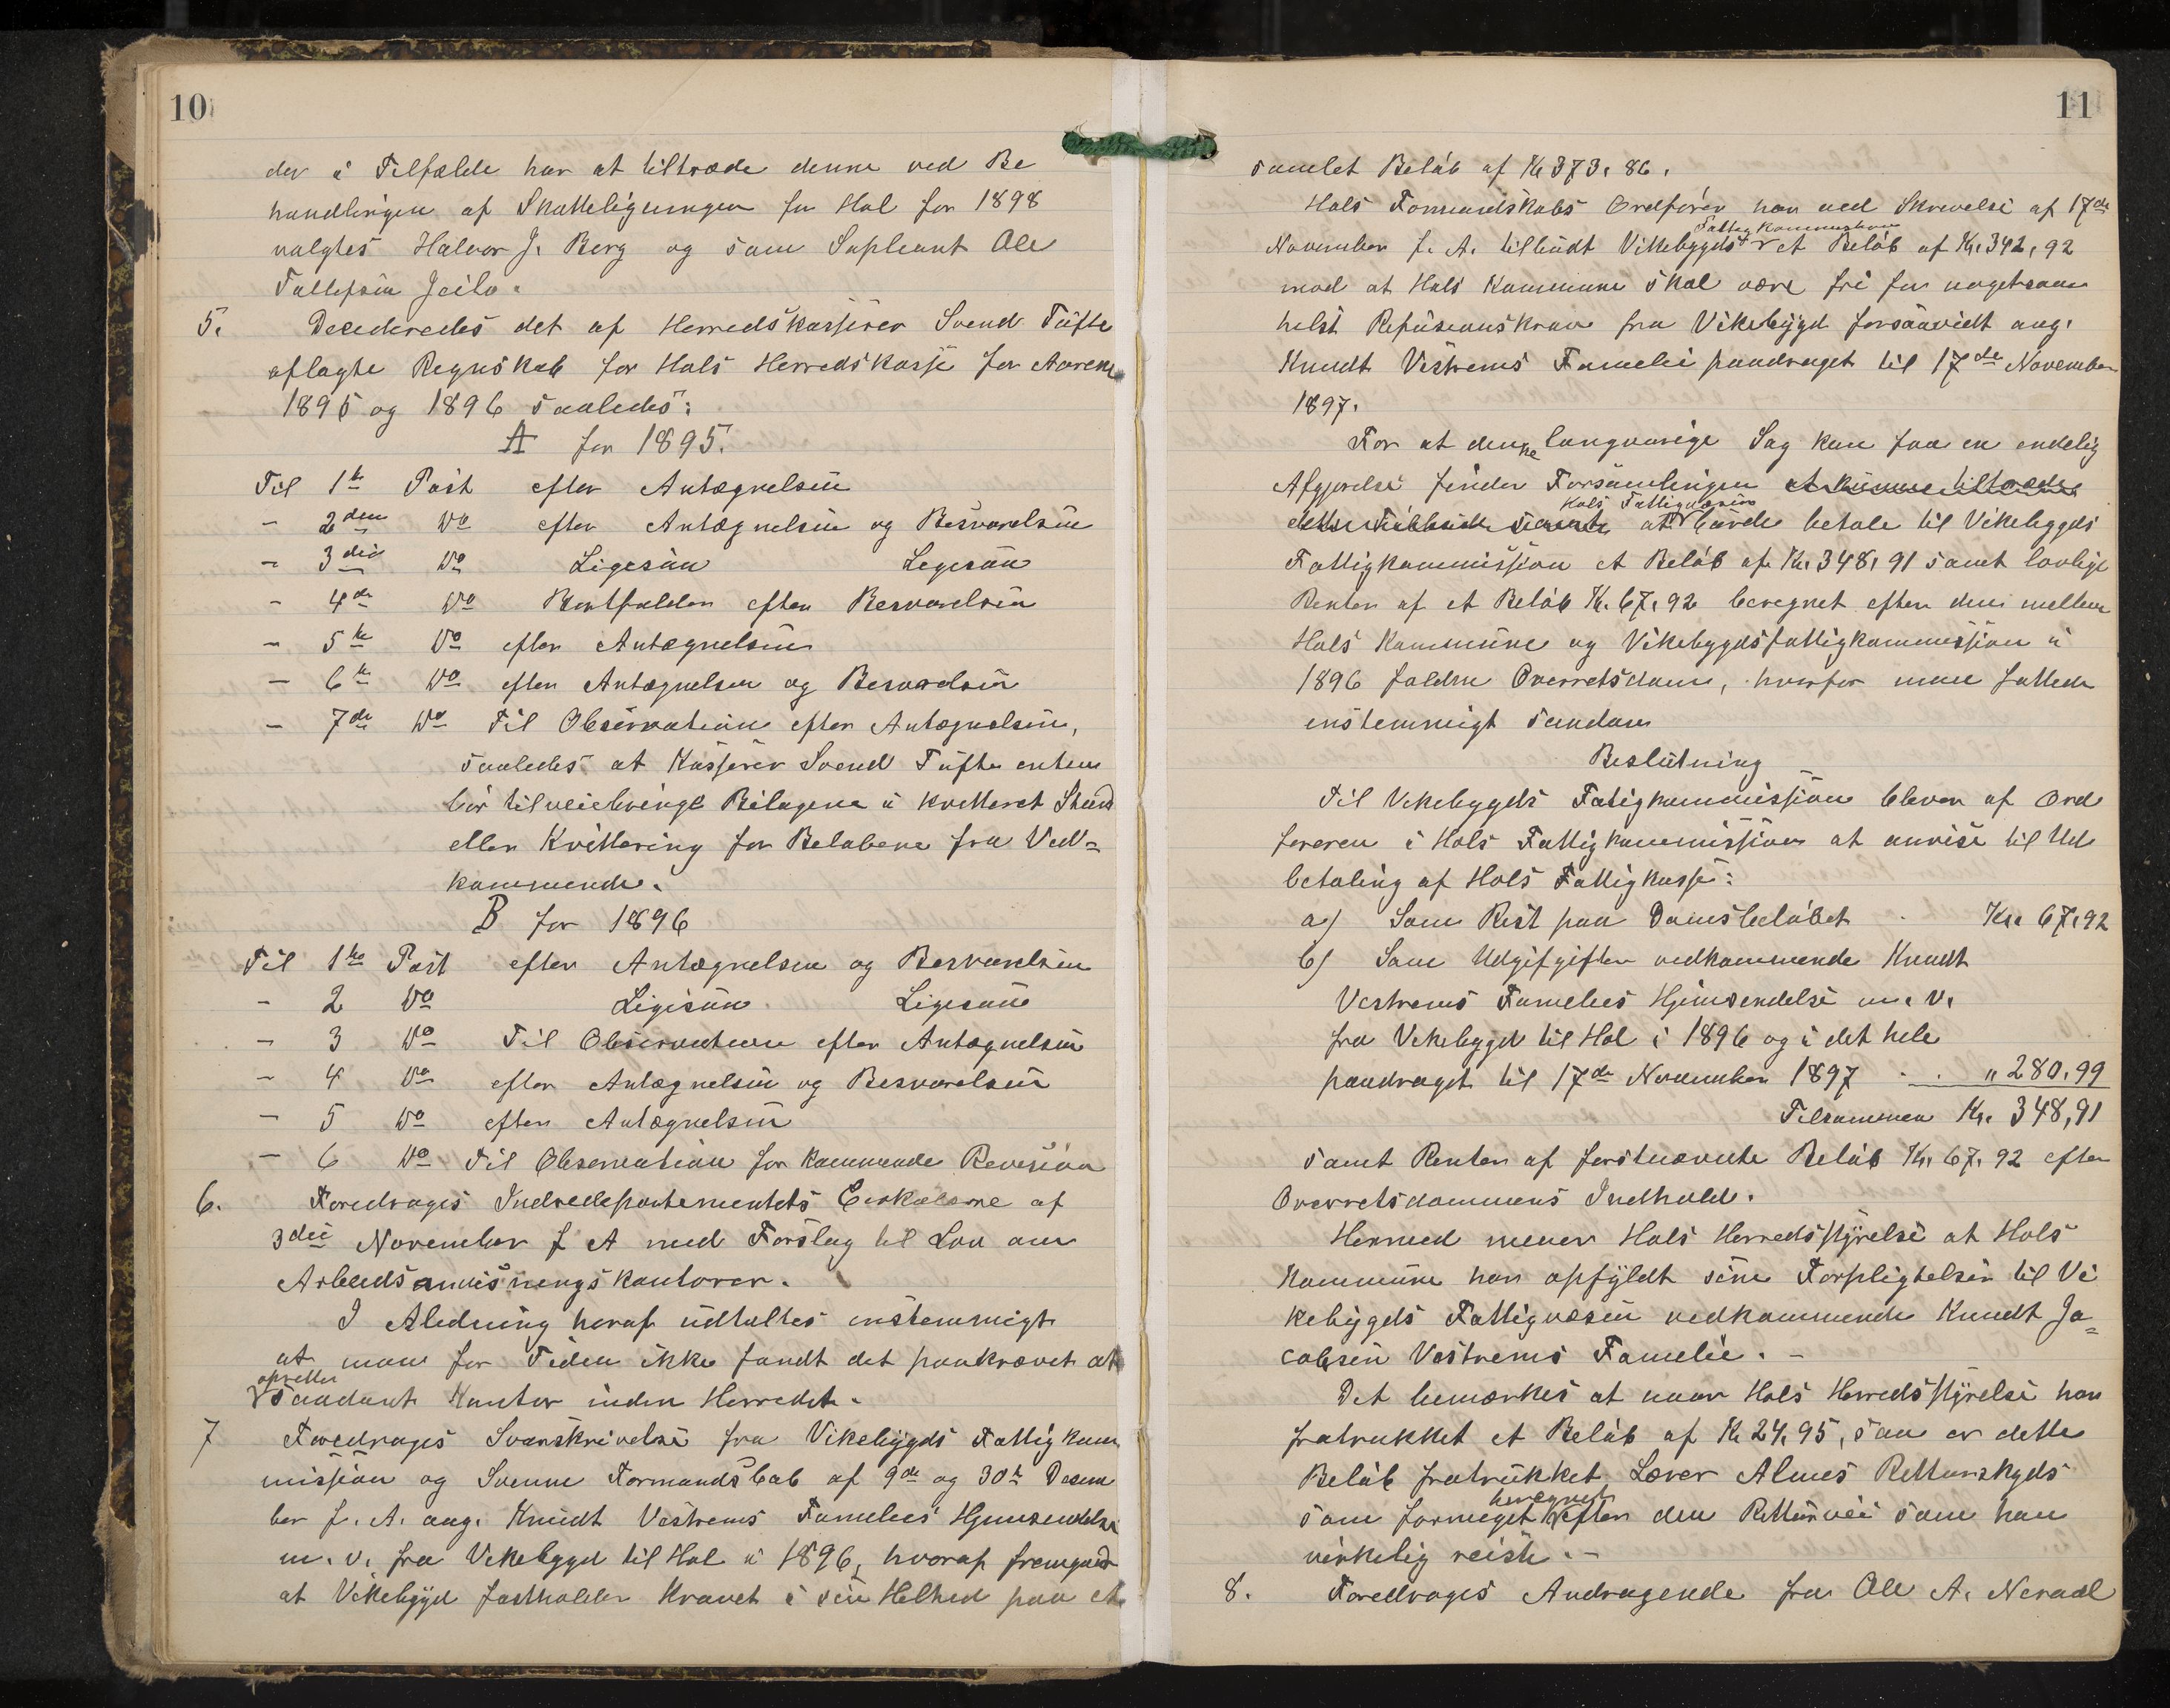 10
der i Tilfælde har at tiltræde denne ved Be
handlingen af Skatteligningen for Hol for 1898
valgtes Halvor J. Berg og som Supleant Ole
Tollefsen Jeilo.
5. Decideredes det af Herredskasserer Svend Tufte
aflagte Regnskab for Hols Herredskasse for Aarene
1895 og 1896 saaledes:
A for 1895.
Til 1te Post efter Antægnelsen
- 2den Do efter Antægnelsen og Besvarelsen
- 3die Do Ligesaa Ligesaa
- 4de Do Bortfalder efter Besvarelsen
- 5te Do efter Antægnelsen
- 6te Do efter Antægnelsen og Besvarelsen
- 7de Do Til Observation efter Antægnelsen,
saaledes at Kasserer Svend Tufte enten
bør tilveiebringe Bilagene i kvitteret Stand
eller Kvittering for Beløbene fra Ved=
kommende.
B for 1896
Til 1te Post efter Antægnelsen og Besvarelsen
- 2 Do Ligesaa Ligesaa
- 3 Do Til Observation efter Antægnelsen
- 4 Do efter Antægnelsen og Besvarelsen
- 5 Do efter Antægnelsen
- 6 Do Til Observation for kommende Revision
6. Foredrages Indredepartementets Cirkulære af
3die November f A med Forslag til Lov om
Arbeidsanvisningskontorer.
I Aledning heraf udtaltes enstemmigt
at man for Tiden ikke fandt det paakrævet at
opretter
saadant Kontor inden Herredet.
7 Foredrages Svarskrivelse fra Vikebygds Fattigkom
mission og Formandskab af 9de og 30te Desem
ber f. A. ang. Knudt Vestrems Families Hjemsendelse
m. v. fra Vikebygd til Hol i 1896, hvoraf fremgaar
at Vikebygd fastholder Kravet i sin Helhed paa et
11
samlet Beløb af Kr 373,86.
Hols Formandskabs Ordfører har ved Skrivelse af 17de
Fattigkommission
November f. A. tilbudt Vikebygds et Beløb af Kr. 342,92
mod at Hols Kommune skal være fri for nogetsom
helst Refusionskrav fra Vikebygd forsaavidt ang.
Knudt Vestrems Familie paadraget til 17de November
1897.
For at denne langvarige Sag kan faa en endelig
Afgjørelse finder Forsamlingen at kunne tiltræde
Hols Fattigvæsen
dette Tilbud at burde betale til Vikebygds
Fattigkommission et Beløb af Kr. 348,91 samt lovlige
Renter af et Beløb Kr. 67,92 beregnet efter den mellem
Hols Kommune og Vikebygds fattigkommission i
1896 faldne Overretsdom, hvorfor man fattede
enstemmigt saadan
Beslutning
Til Vikebygds Fatigkommission bliver af Ord
føreren i Hols Fattigkommission at anvise til Ud
betaling af Hols Fattigkasse:
a) Som Rest paa Domsbeløbet . Kr. 67,92
b) Som Udgifgifter vedkommende Knudt
Vestrems Families Hjemsendelse m. v.
fra Vikebygd til Hol i 1896 og i det hele
paadraget til 17de November 1897 . . " 280,99
Tilsammen Kr. 348,91
samt Renter af førstnævnte Beløb Kr. 67,92 efter
Overretsdommens Indhold.
Hermed mener Hols Herredsstyrelse at Hols
Kommune har opfyldt sine Forpligtelser til Vi
kebygds Fattigvæsen vedkommende Knudt Ja=
cobsen Vestrems Familie. -
Det bemærkes at naar Hols Herredsstyrelse har
fratrukket et Beløb af Kr 24,95, saa er dette
Beløb fratrukket Lærer Almes Retturskyds
beregnet
som formeget efter den Retturvei som han
virkelig reiste. -
8. Foredrages Andragende fra Ole A. Neraal